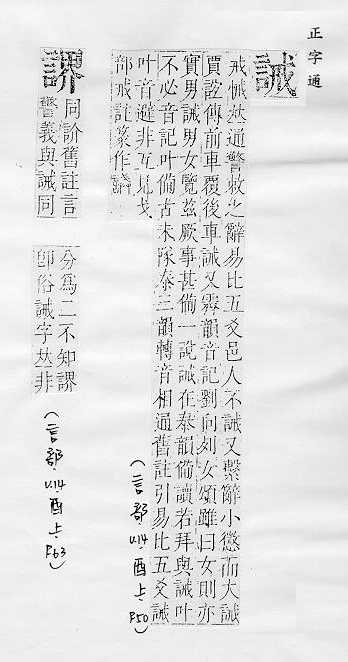 正字通
誡
戒悈𠀤通警敕之辭易比五爻邑人不誡又繫辭小懲而大誡
賈誼傳前車覆後車誡又霽韻音記劉向列女頌雖曰女則亦
實男誡男女覽茲厥事甚備一說誡在泰韻備讀若拜與誡叶
不必音記叶備古未隊泰三韻轉音相通舊註引易比五爻誡
叶音避非互見戈
部戒註篆作
(言部 U14 酉上 P50)
䜘
同診舊註言
警義與誡同
分爲二不知䜘
卽俗誡字𠀤非
(言部 U14 酉上 P63)